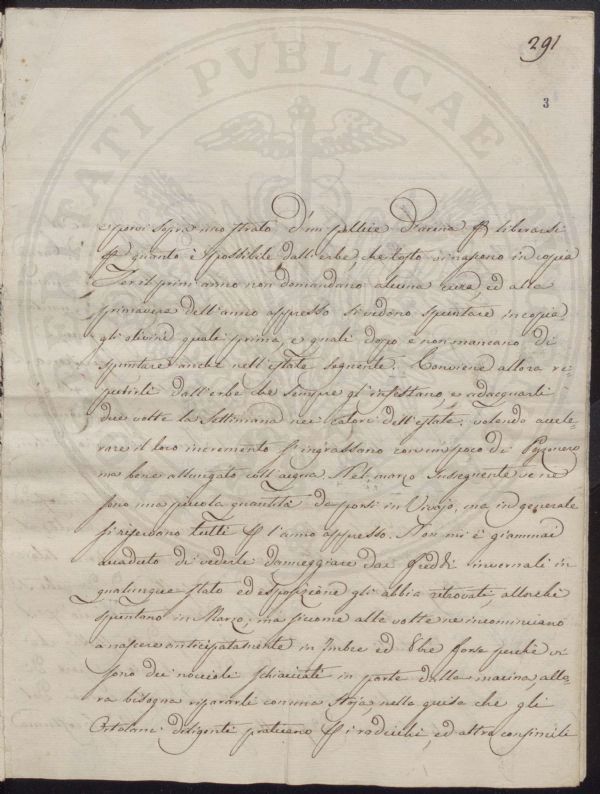 291
3
e porvi sopra uno strato d'un pollice d'arena p liberarsi
p quanto è possibile dall'erbe, che tosto vi nascono in copia
Per il primo anno non domandano alcuna cura, ed alla
primavera dell'anno appresso si vedono spuntare in copia
gli olivini quali prima, e quali dopo e non mancano di
spuntare anche nell'estate seguente. Conviene allora ri-
pulirli dall'erbe che sempre gl'infestano, e adacquarli
due volte la Settimana nei calori dell'estate; volendo accele-
rare il loro incremento s'ingrassano con un poco di
ma bene allungato coll'acqua. Nel marzo susseguente ve ne
sono una piccola quantità da porsi in Vivajo, ma in generale
si riserbano tutti p l'anno appresso. Non mi è giammai
accaduto di vederli danneggiare dai freddi invernali in
qualunque stato ed esposizione gli abbia ritrovati, allorchè
spuntano in Marzo; ma siccome alle volte ne incominciano
a nascere anticipatamente in 9mbre ed Xbre forse perchè vi
sono dei noccioli schiacciati in parte dalla macina, allo-
ra bisogna ripararli con una Stoja, nella guisa che gli
Ortolani diligenti praticano p i radicchi, ed altre consimili
PVBLICAE